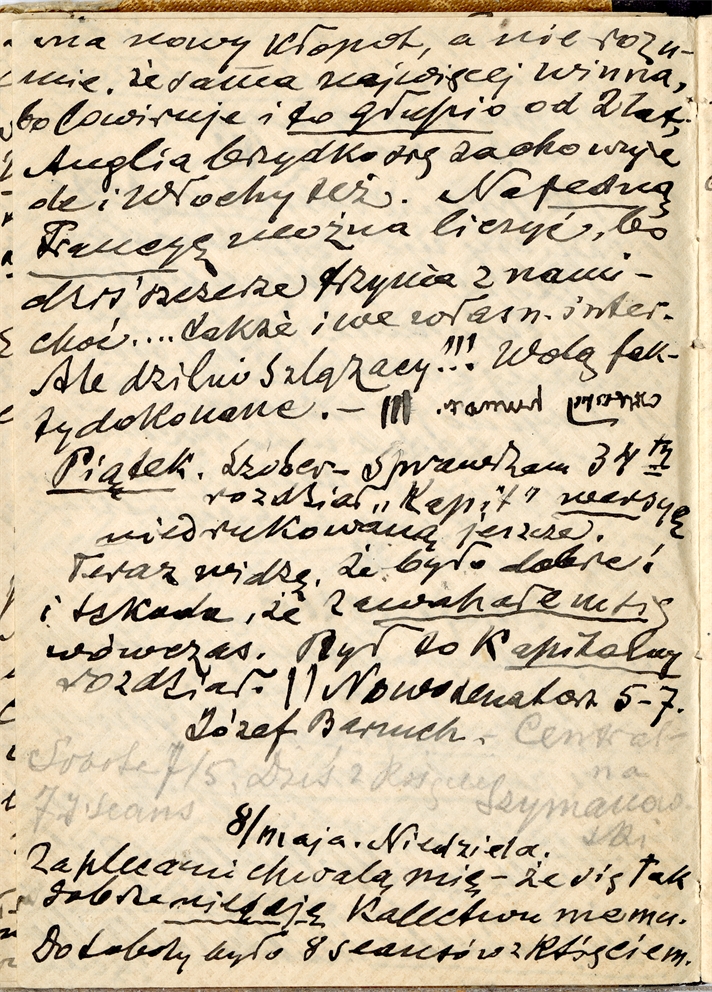 ma nowy kłopot, a nie rozu-
mie, że sama najwięcej winna,
bo lawiruje i to głupio od 2 lat,
Anglia brzydko się zachowuje
de i Włochy też. Na jedną
Francyę można liczyć, bo
dziś szczerze trzyma z nami -
choć.... także i we własn. inter.
Ale dzielni Szlązacy!!! Wolą fak-
ty dokonane. -
Piątek. Sprawdzam 34 ty
rozdział „Kapit" wersyę
niedrukowaną jeszcze.
Teraz widzę, że było dobre!
i szkoda, że zawahałem się
wówczas. Był to Kapitalny
rozdział. !! Nowosenator 5-7.
Józef Baruch. - Central-
na
Sobota 7/5. Dziś z Księciem
77 seans Szymanow-
ski
8/maja. Niedziela.
Za plecami chwalą mię - że się tak
dobrze nie daję kalectwu memu.
Do soboty było 8 seansów z Księciem.